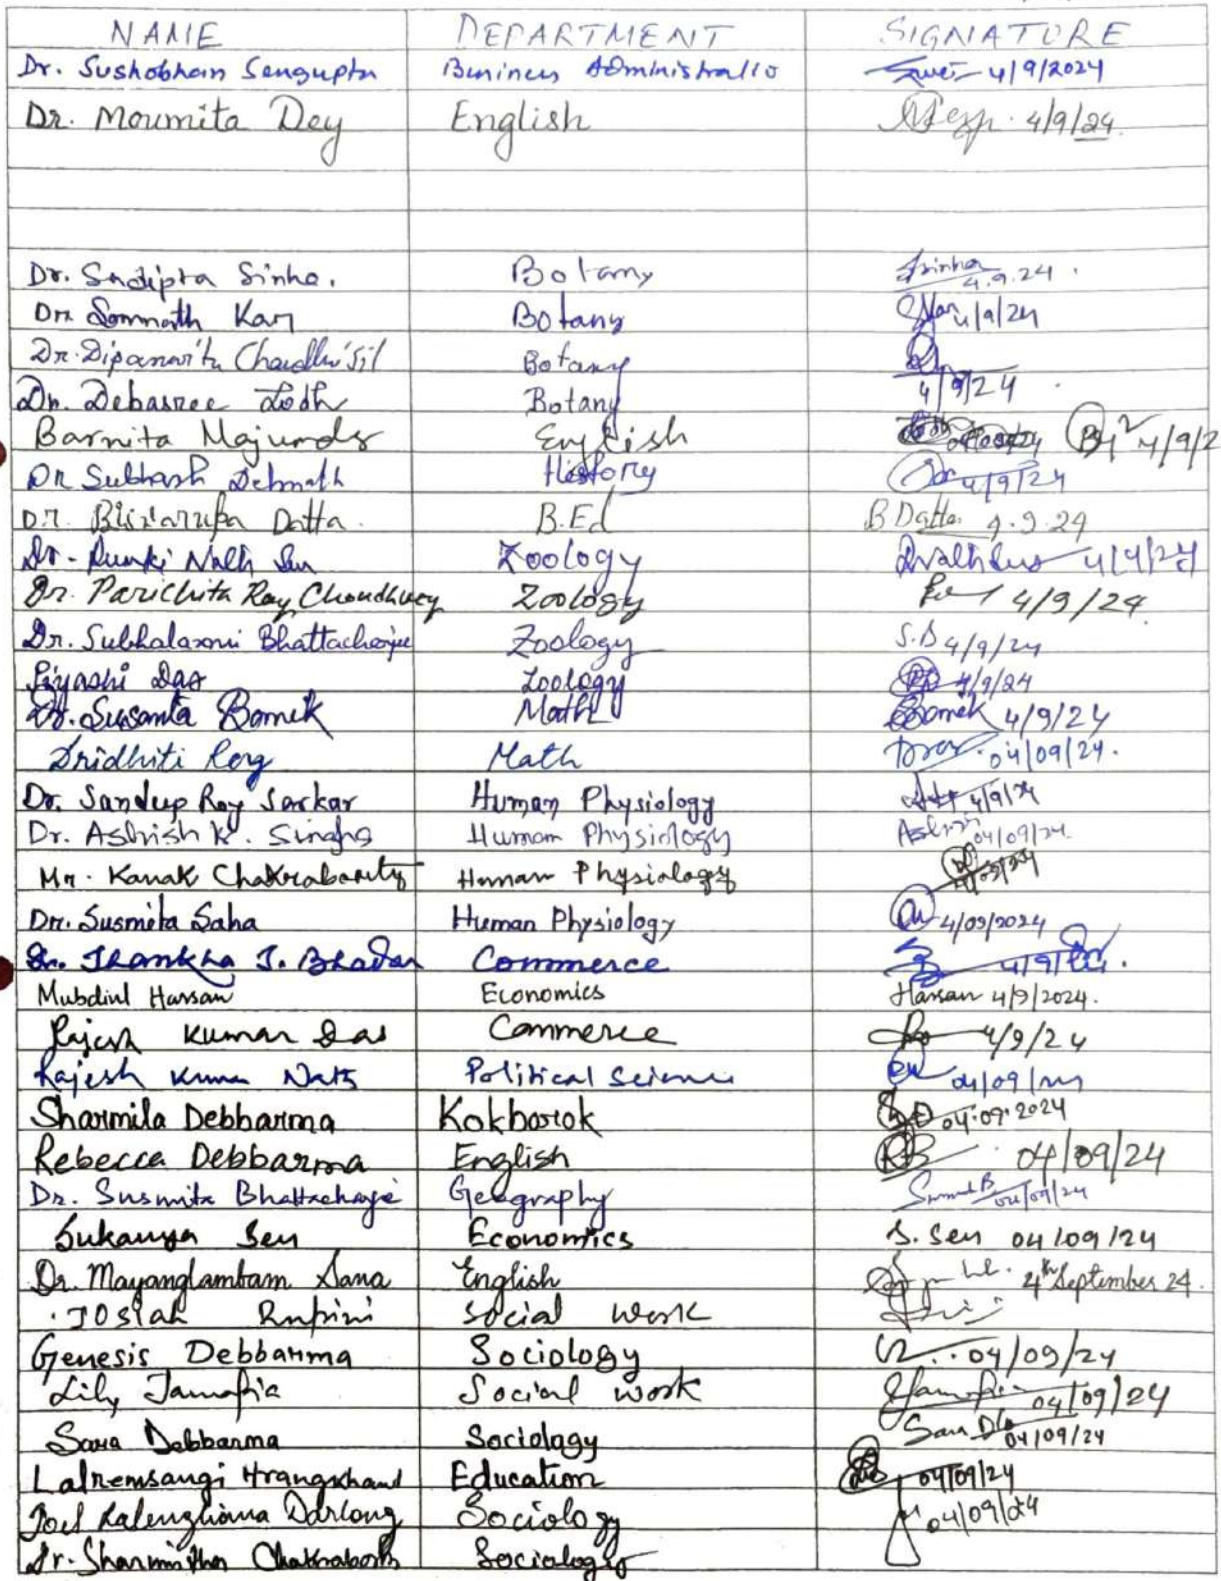 NAME DEPARTMENT SIGNATURE
Dr. Sushobhan Sengupta Business Administratio 4/9/2024
Dr. Moumita Dey English 4/9/24
Dr. Sudipta Sinha. Botany Ssinha 4.9.24
Dr. Somnath Kar Botany SKar 4/9/24
Dr. Dipanwita Chaudhuri Sil Botany 4/9/24
Dr. Debasree Lodh Botany
Barnita Majumder English 4/9/2
Dr Subhash Debnath History 4/9/24
Dr. Biswarupa Datta. B.Ed B Datta 4.9.24
Dr. Runki Nath Sur Zoology 4/9/24
Dr. Parichita Ray Choudhury Zoology 4/9/24
Dr. Subhalaxmi Bhattacharjee Zoology S.B 4/9/24
Piyashi Das Zoology 4/9/24
Dr. Susanta Bomik Math Bomik 4/9/24
Dridhiti Roy Math 04/09/24.
Dr. Sandip Roy Sarkar Human Physiology 4/9/24
Dr. Ashish K. Singha Human Physiology Ashish 04/09/24.
Mr. Kanak Chakraborty Human Physiology
Dr. Susmita Saha Human Physiology 4/09/2024
Dr. Thankha J. Bhadar Commerce 4/9/24.
Mubdiul Hassan Economics Hassan 4/9/2024.
Rajesh Kumar Das Commerce 4/9/24
Rajesh Kumar Nath Political Science 04/09/24
Sharmila Debbarma Kokborok SD 04.09.2024
Rebecca Debbarma English RB 04/09/24
Dr. Susmita Bhattacharje Geography 04/09/24
Sukanya Sen Economics S. Sen 04/09/24
Dr. Mayanglambam Sana English 4th September 24.
Josiah Rupini Social Work
Genesis Debbarma Sociology 04/09/24
Lily Jamatia Social work 04/09/24
Sana Debbarma Sociology 04/09/24
Lalremsangi Hrangkhawl Education 04/09/24
Joel Lalenghiana Darlong Sociology 04/09/24
Dr. Sharmistha Chakraborty Sociology